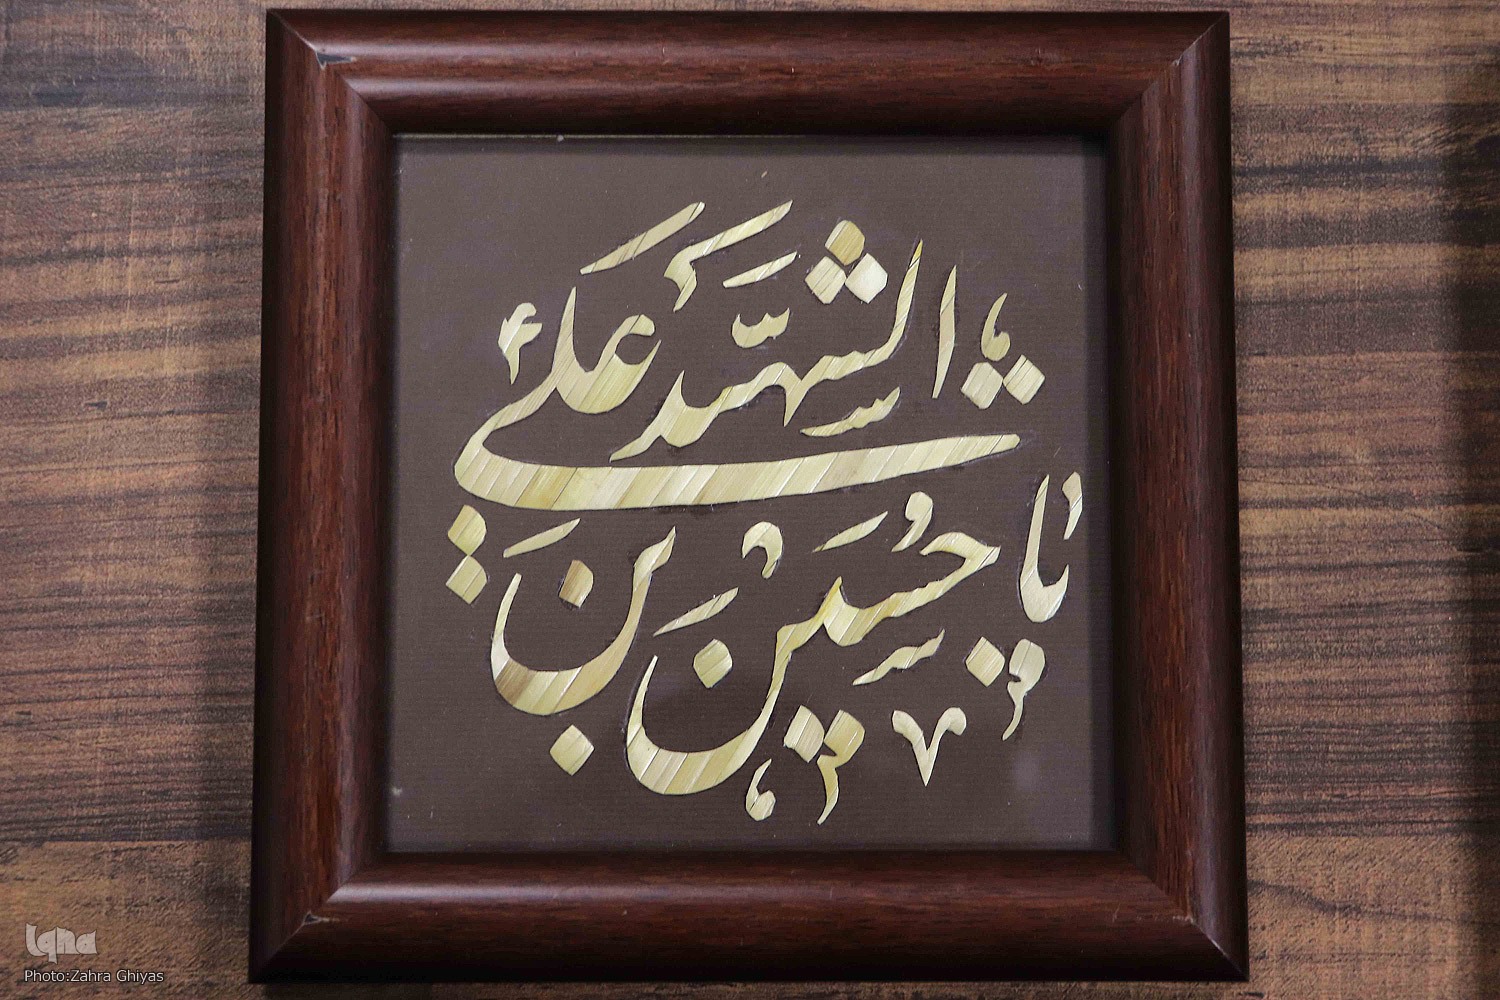 یا حسین بن
علی الشهید
Iqna
Photo:Zahra Ghiyas